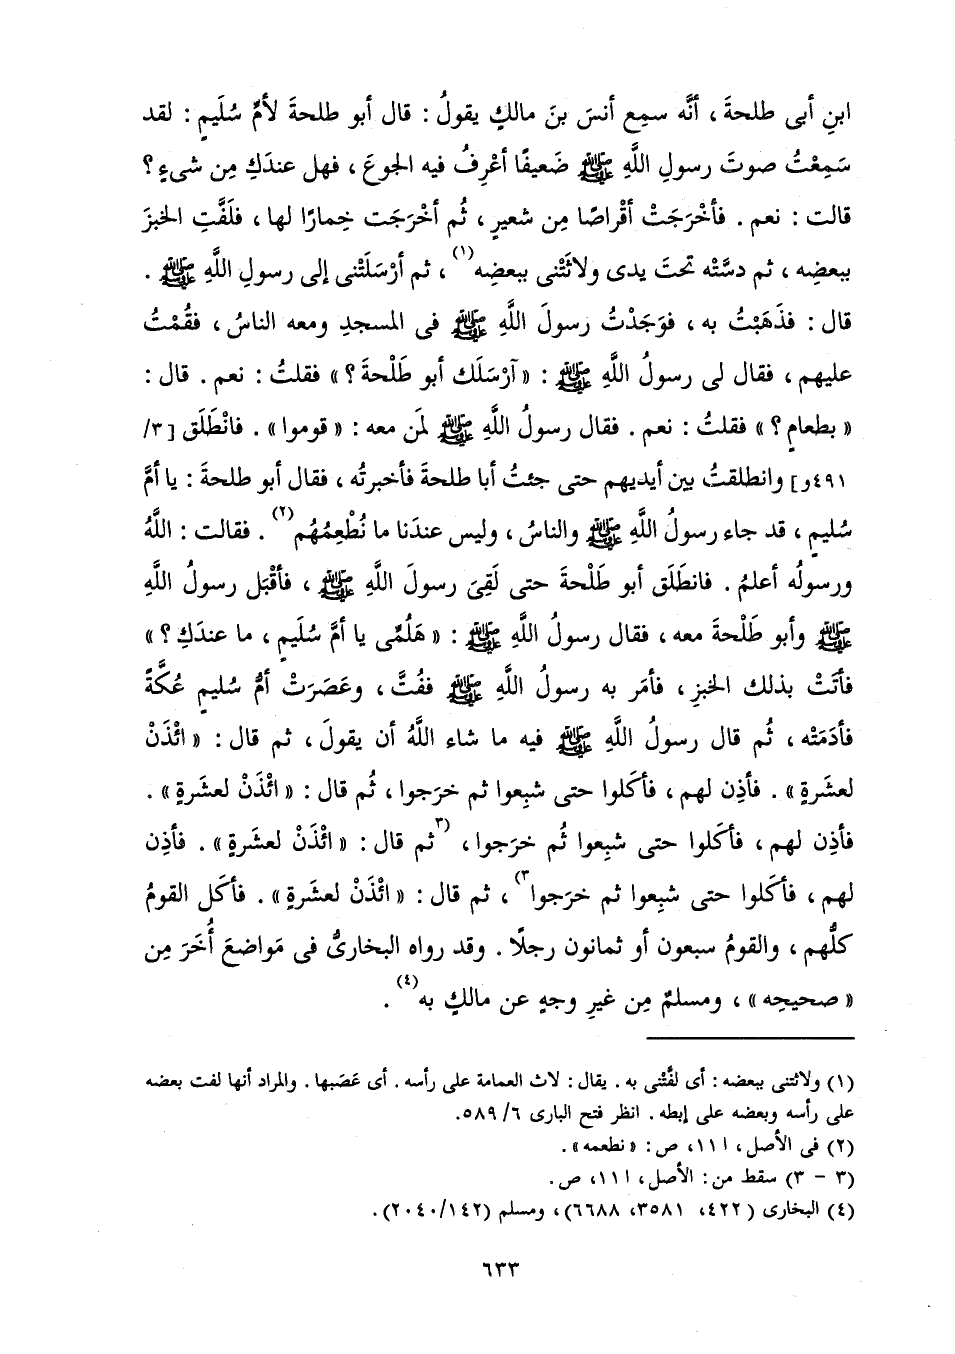 ابنِ أبى طلحةَ ، أنَّه سمِع أنسَ بنَ مالكٍ يقولُ : قال أبو طلحةَ لأمِّ سُلَيمٍ : لقد
سَمِعْتُ صوتَ رسولِ اللَّهِ ﷺ ضَعيفًا أعْرِفُ فيه الجوعَ ، فهل عندَكِ مِن شىءٍ ؟
قالت : نعم . فأخْرَجَتْ أقْراصًا مِن شعيرٍ ، ثُم أخْرَجَت خِمارًا لها ، فلَفَّتِ الخبزَ
ببعضِه ، ثم دسَّتْه تحتَ يدى ولاثَتْنى ببعضِه(١) ، ثم أرْسَلَتْنى إلى رسولِ اللَّهِ ﷺ .
قال : فذَهَبْتُ به ، فوَجَدْتُ رسولَ اللَّهِ ﷺ فى المسجدِ ومعه الناسُ ، فقُمْتُ
عليهم ، فقال لى رسولُ اللَّهِ ﷺ : « آرْسَلَك أبو طَلْحةَ ؟ » فقلتُ : نعم . قال :
« بطعامٍ ؟ » فقلتُ : نعم . فقال رسولُ اللَّهِ ﷺ لمَن معه : « قوموا » . فانْطَلَق [٣/
٤٩١و] وانطلقتُ بين أيديهم حتى جئتُ أبا طلحةَ فأخبرتُه ، فقال أبو طلحةَ : يا أمَّ
سُليمٍ ، قد جاء رسولُ اللَّهِ ﷺ والناسُ ، وليس عندَنا ما نُطْعِمُهُم(٢) . فقالت : اللَّهُ
ورسولُه أعلمُ . فانطَلَق أبو طَلْحةَ حتى لَقِىَ رسولَ اللَّهِ ﷺ ، فأقْبَل رسولُ اللَّهِ
ﷺ وأبو طَلْحةَ معه ، فقال رسولُ اللَّهِ ﷺ : « هَلُمِّى يا أمَّ سُلَيمٍ ، ما عندَكِ ؟ »
فأتَتْ بذلك الخبزِ ، فأمَر به رسولُ اللَّهِ ﷺ ففُتَّ ، وعَصَرَتْ أمُّ سُليمٍ عُكَّةً
فأدَمَتْه ، ثُم قال رسولُ اللَّهِ ﷺ فيه ما شاء اللَّهُ أن يقولَ ، ثم قال : « ائْذَنْ
لعشَرةٍ » . فأذِن لهم ، فأكَلوا حتى شبِعوا ثم خرَجوا ، ثُم قال : « ائْذَنْ لعشرةٍ » .
فأذِن لهم ، فأكَلوا حتى شبِعوا ثُم خرَجوا ، (٣ثم قال : « ائْذَنْ لعشرةٍ » . فأذِن
لهم ، فأكَلوا حتى شبِعوا ثم خرَجوا٣) ، ثم قال : « ائْذَنْ لعشرةٍ » . فأكَل القومُ
كلُّهم ، والقومُ سبعون أو ثمانون رجلًا . وقد رواه البخارىُّ فى مَواضعَ أُخَرَ مِن
« صحيحِه » ، ومسلمٌ مِن غيرِ وجهٍ عن مالكٍ به(٤) .
(١) ولاثتنى ببعضه : أى لفَّتْنى به . يقال : لاث العمامة على رأسه . أى عَصَبها . والمراد أنها لفت بعضه
على رأسه وبعضه على إبطه . انظر فتح البارى ٦/ ٥٨٩.
(٢) فى الأصل ، ١١١ ، ص : « نطعمه » .
(٣ - ٣) سقط من : الأصل ، ١١١ ، ص .
(٤) البخارى (٤٢٢، ٣٥٨١، ٦٦٨٨) ، ومسلم (٢٠٤٠/١٤٢) .
٦٣٣